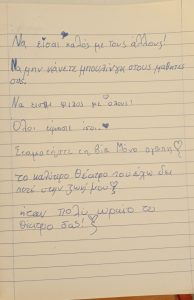 Να είσαι καλος με τους άλλους!
Να μην κάνετε μπουλινγκ στους μαθητες
σας.
Να εισαι φίλος με όλους!
Όλοι είμαστε ίσοι.
Σταματήστε τη βία Μονο αγάπη
το καλύτερο θέατρο που έχω δει
ποτέ στην ζωή μου!
ήταν πολύ ωραίο το
θέατρο σας!